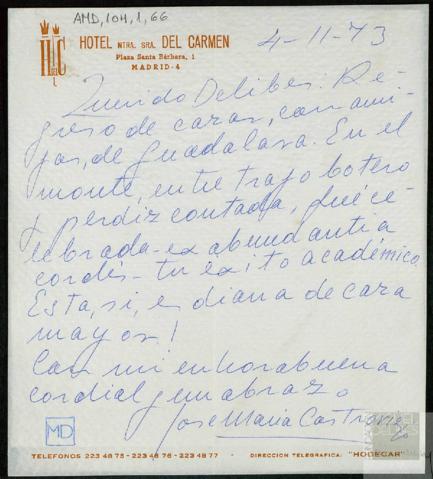 AMD,104,1,66
HOTEL NTRA. SRA. DEL CARMEN
Plaza Santa Bárbara, 1
MADRID-4
4-11-73
Querido Delibes: Re-
greso de cazar, con ami-
gos, de Guadalajara. En el
monte, entre trago botero
y perdiz contada, fué ce-
lebrado -ex abundantia
cordis- tu éxito académico.
Esta, sí, es diana de caza
mayor!
Con mi enhorabuena
cordial y un abrazo
José María Castroviejo
MD
TELEFONOS 223 48 75 - 223 48 76 - 223 48 77 - DIRECCION TELEGRAFICA: "HODECAR"